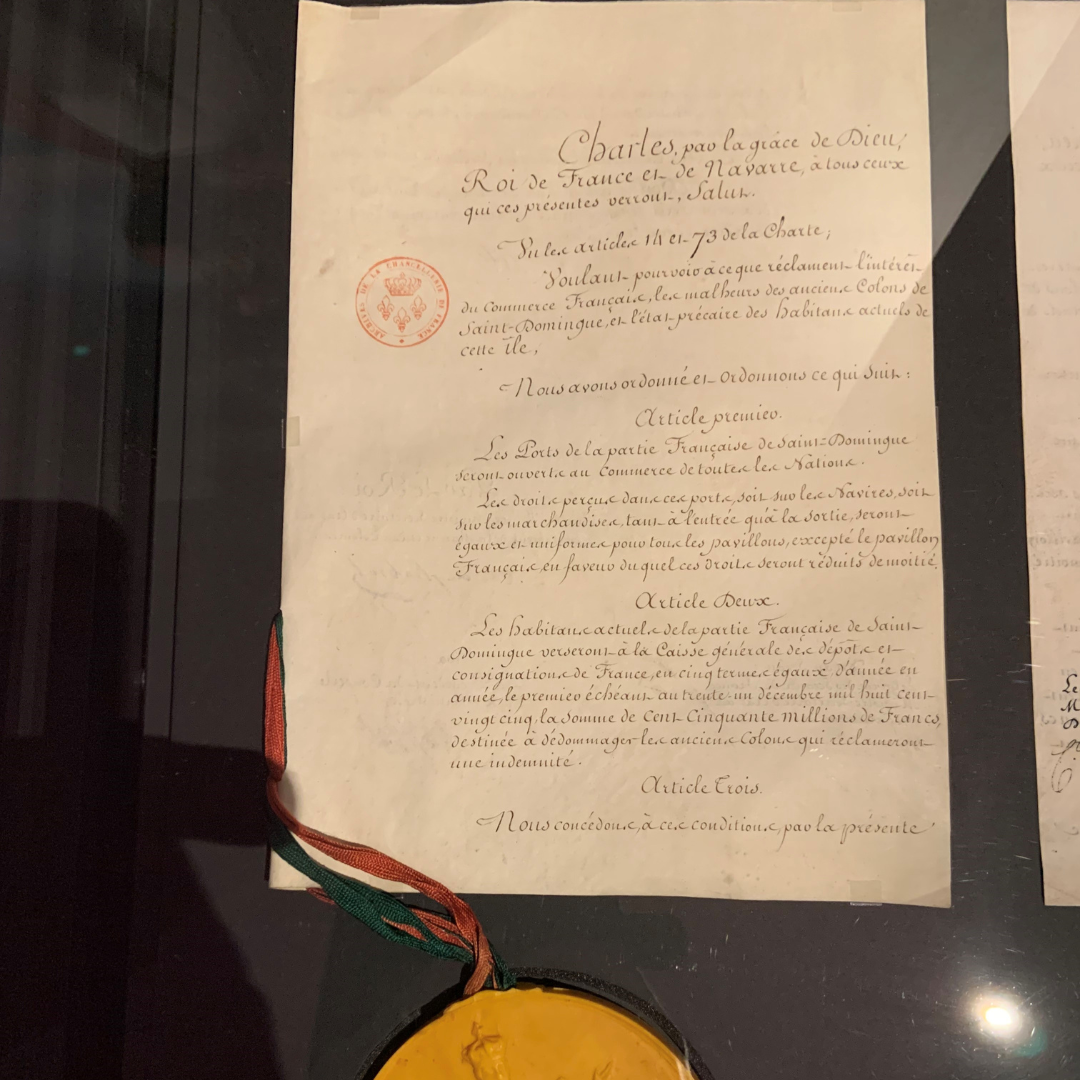 Charles, par la grâce de Dieu,
Roi de France et de Navarre, à tous ceux
qui ces présentes verront, Salut.
Vu les articles 14 et 73 de la Charte;
Voulant pourvoir à ce que réclament l'intérêt
du Commerce Français, les malheurs des anciens Colons de
Saint-Domingue, et l'état précaire des habitans actuels de
cette Île;
Nous avons ordonné et ordonnons ce qui suit:
Article premier.
Les Ports de la partie Française de Saint-Domingue
seront ouverts au Commerce de toutes les Nations.
Les droits perçus dans ces ports, soit sur les Navires, soit
sur les marchandises, tant à l'entrée qu'à la sortie, seront
égaux et uniformes pour tous les pavillons, excepté le pavillon
Français, en faveur duquel ces droits seront réduits de moitié.
Article Deux.
Les habitans actuels de la partie Française de Saint-
Domingue verseront à la Caisse générale des dépôts et
consignations de France, en cinq termes égaux d'année en
année, le premier échéant au trente-un décembre mil huit cent
vingt cinq, la somme de Cent Cinquante millions de Francs,
destinée à dédommager les anciens Colons qui réclameront
une indemnité.
Article Trois.
Nous concédons, à ces conditions, par la présente
ARCHIVES DE LA CHANCELLERIE DE FRANCE
Le
M